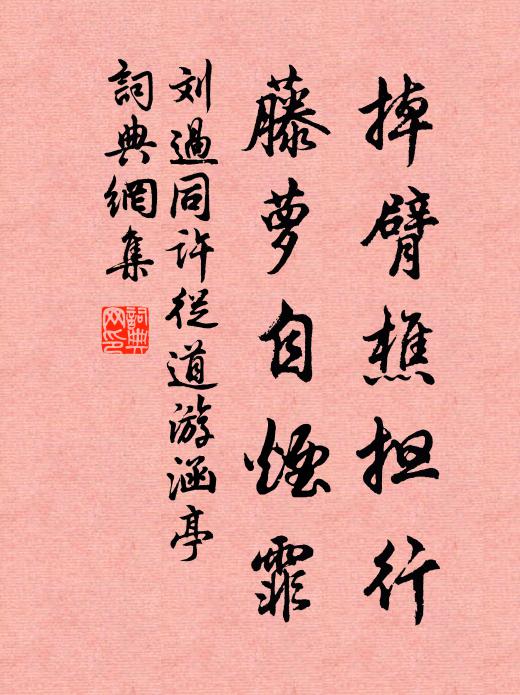 掉臂樵担行
藤萝自烟霏
刘過同许從道游涵亭
詞典網集
詞典网印